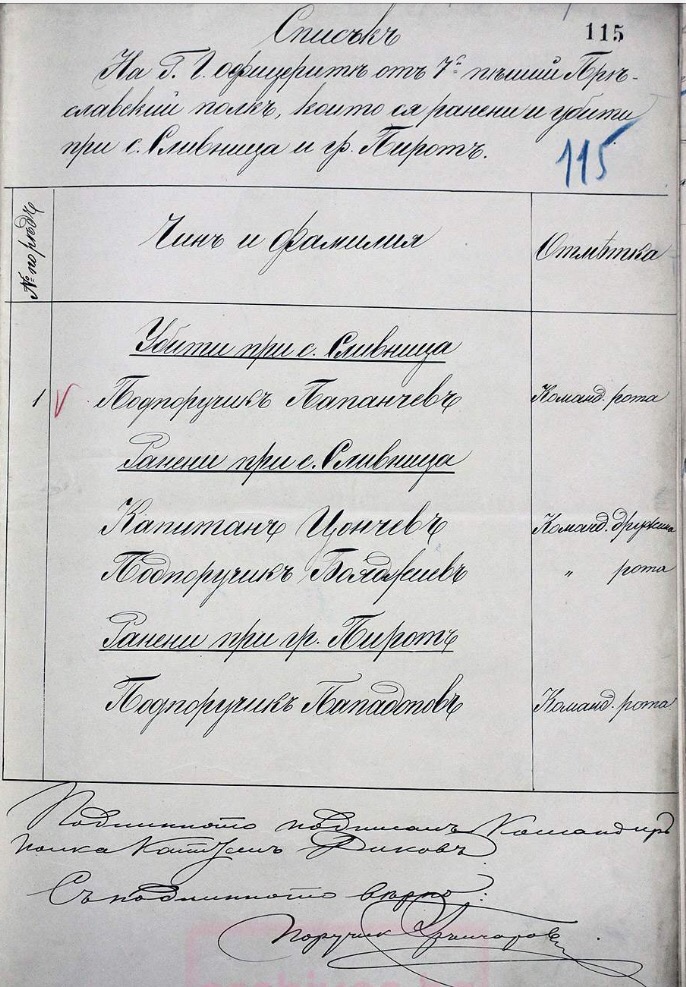 Списъкъ
115
На Г. Г. офицеритѣ от 7й пѣший Прѣ-
славский полкъ, които ся ранени и убити
при с. Сливница и гр. Пиротъ.
115
№ по редъ
Чинъ и фамилия
Отмѣтка
Убити при с. Сливница
1 Подпоручикъ Папанчевъ
Команд. рота
Ранени при с. Сливница
Капитанъ Цончевъ
Команд. дружина
Подпоручикъ Бояджиевъ
" рота
Ранени при гр. Пиротъ
Подпоручикъ Пападоповъ
Команд. рота
Подлинното подписалъ Командиръ
полка Капитанъ Диковъ
Съ подлинното вѣрно:
Поручик